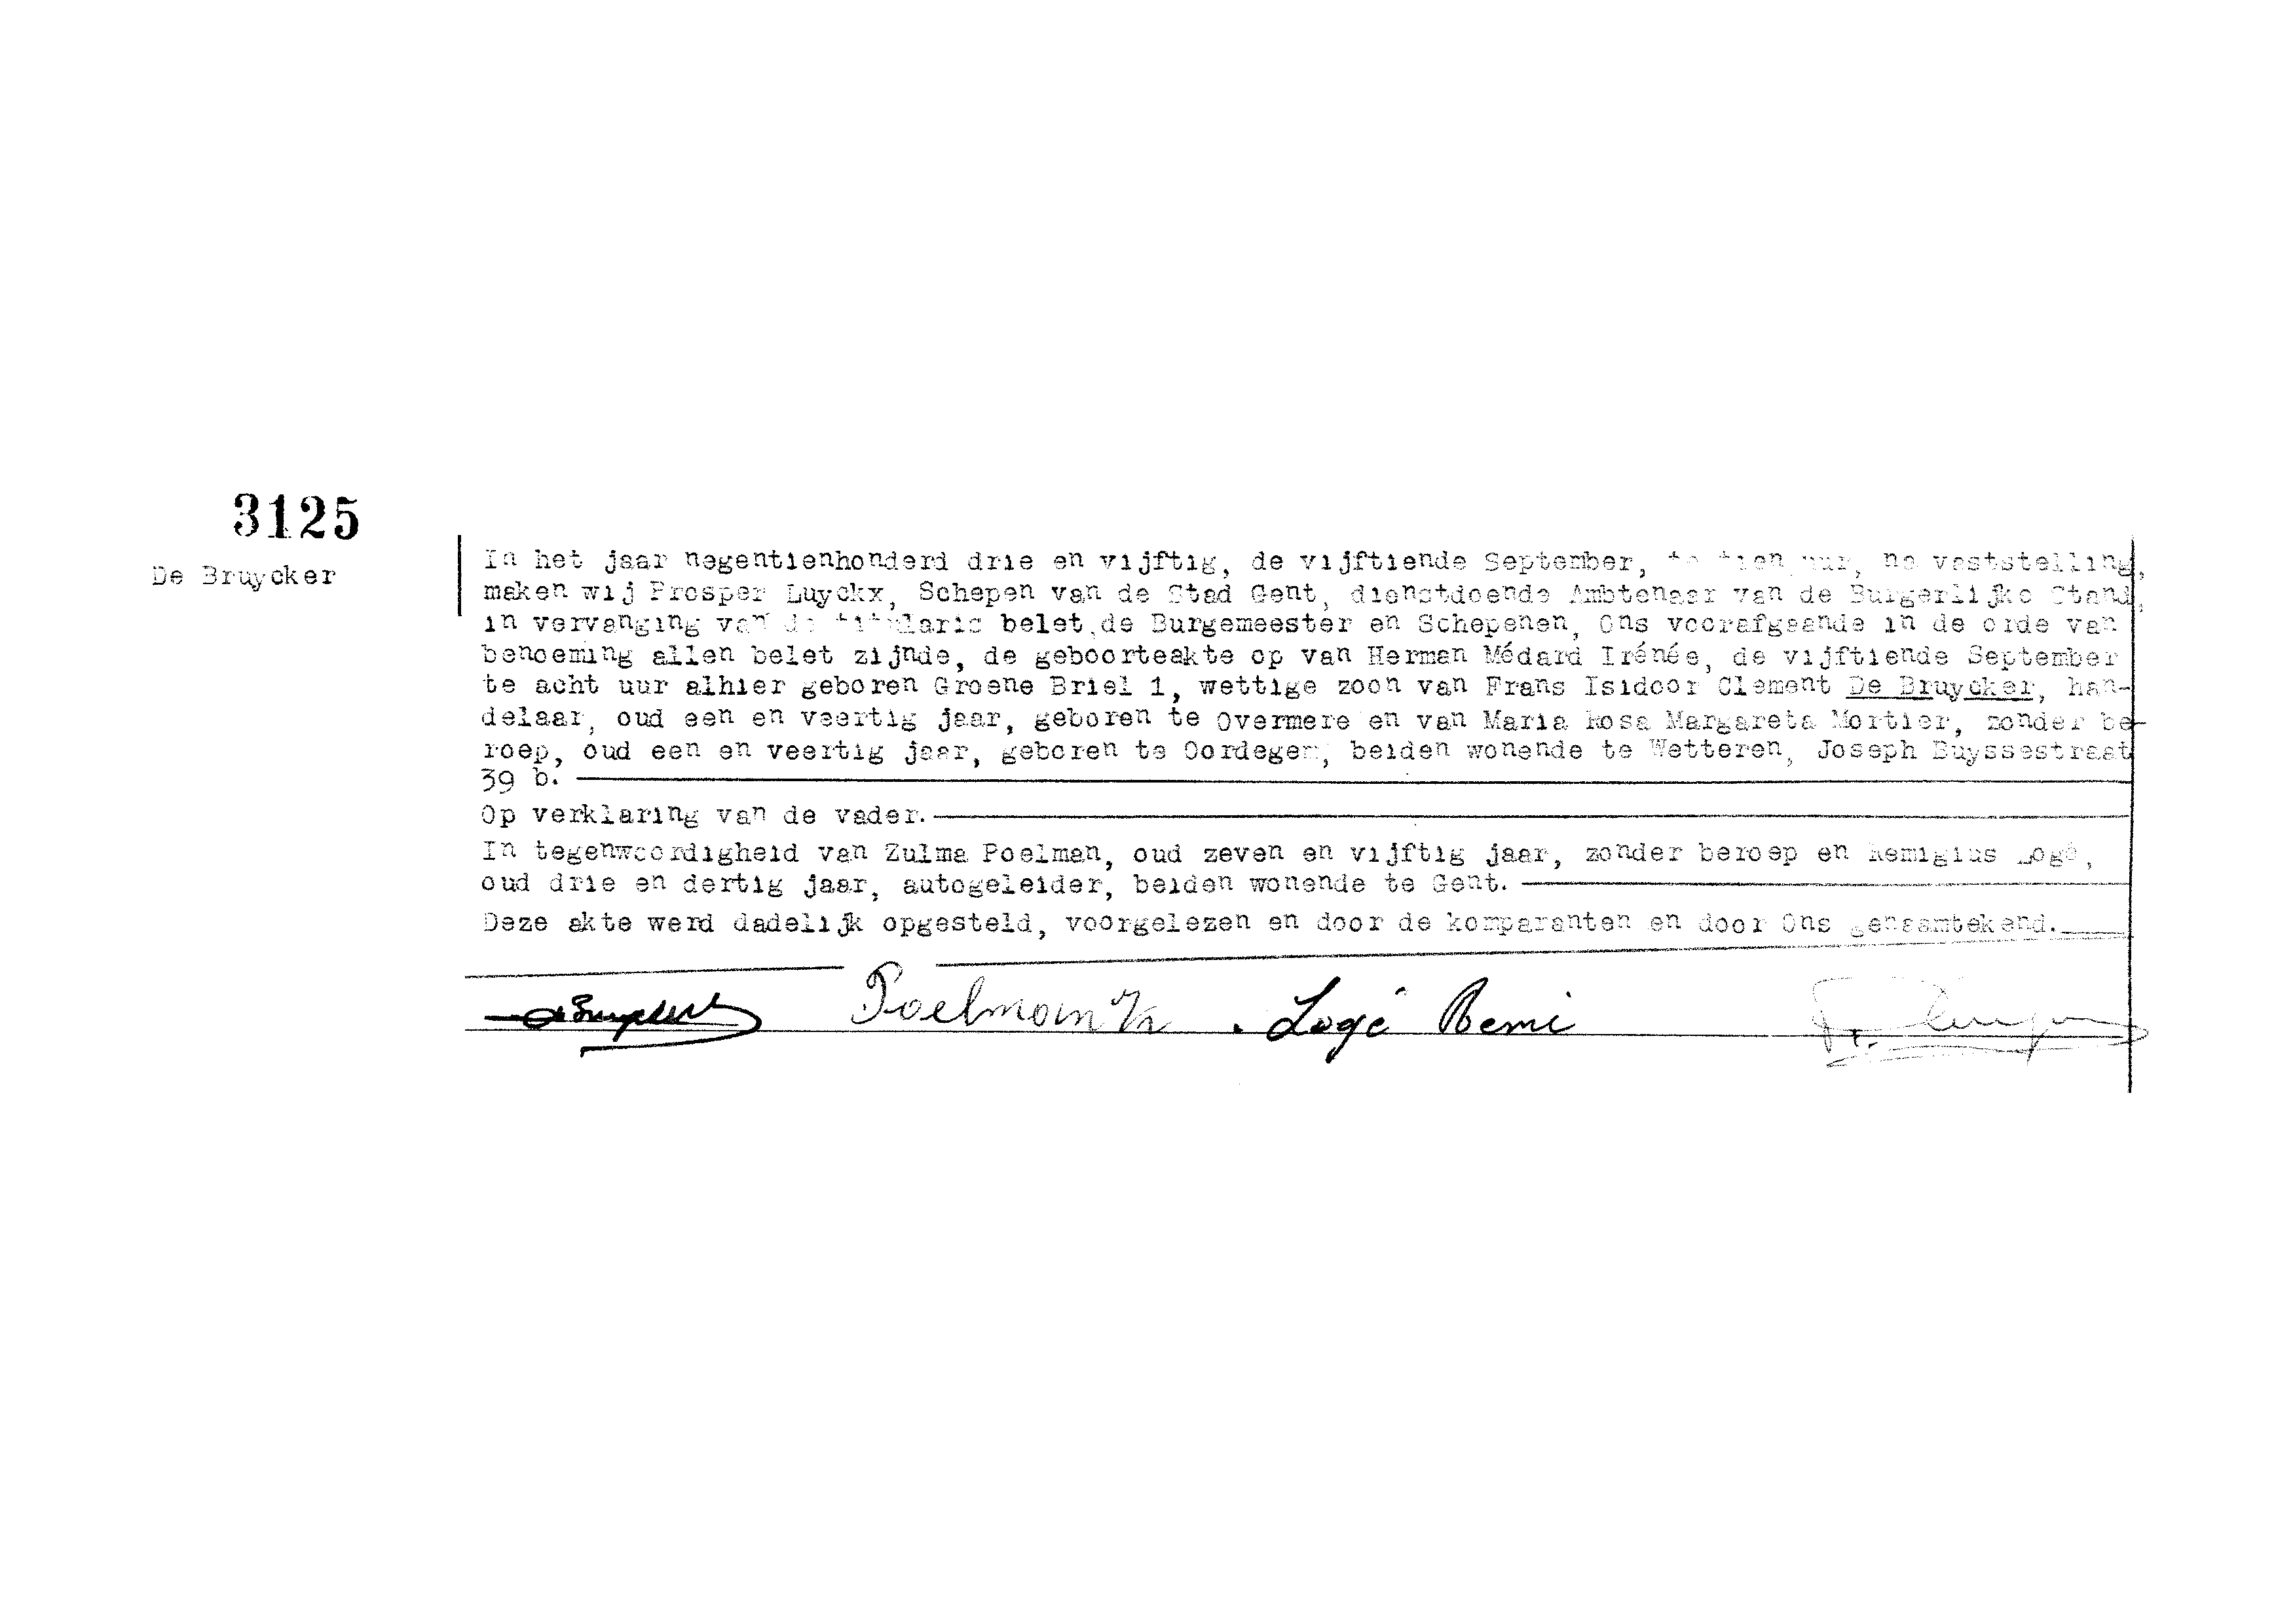 3125
De Bruycker
In het jaar negentienhonderd drie en vijftig, de vijftiende September, te tien uur, na vaststelling,
maken wij Prosper Luyckx, Schepen van de Stad Gent, dienstdoende Ambtenaar van de Burgerlijke Stand,
in vervanging van de titularis belet,de Burgemeester en Schepenen, Ons voorafgaande in de orde van
benoeming allen belet zijnde, de geboorteakte op van Herman Médard Irénée, de vijftiende September
te acht uur alhier geboren Groene Briel 1, wettige zoon van Frans Isidoor Clement De Bruycker, han-
delaar, oud een en veertig jaar, geboren te Overmere en van Maria Rosa Margareta Mortier, zonder be-
roep, oud een en veertig jaar, geboren te Oordegem, beiden wonende te Wetteren, Joseph Buyssestraat
39 b.
Op verklaring van de vader.
In tegenwoordigheid van Zulma Poelman, oud zeven en vijftig jaar, zonder beroep en Remigius Logé,
oud drie en dertig jaar, autogeleider, beiden wonende te Gent.
Deze akte werd dadelijk opgesteld, voorgelezen en door de komparanten en door Ons genaamtekend.
Poelman Logé Remi